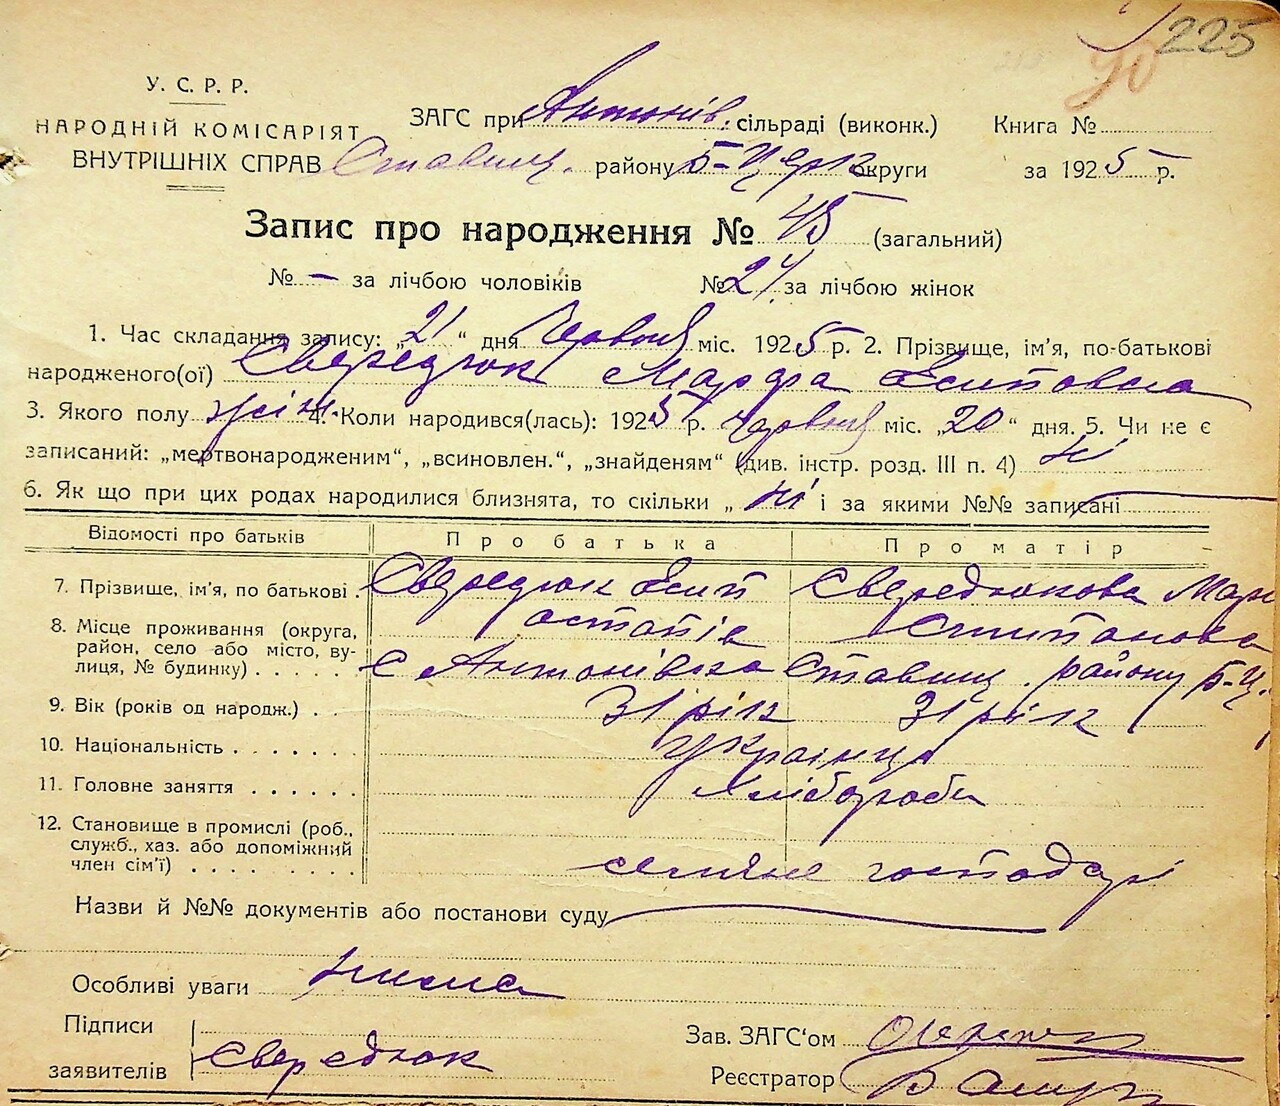 225
90
У. С. Р. Р.
НАРОДНІЙ КОМІСАРІЯТ
ВНУТРІШНІХ СПРАВ
ЗАГС при Антонів. сільраді (виконк.)
Ставищ. району Б-Церк. округи
Книга №
за 1925 р.
Запис про народження № 45 (загальний)
№ — за лічбою чоловіків № 24 за лічбою жінок
1. Час складання запису: „21“ дня Червня міс. 1925 р. 2. Прізвище, ім’я, по-батькові
народженого(ої) Свередюк Марфа Єсиповна
3. Якого полу жін. 4. Коли народився(лась): 1925 р. Червня міс. „20“ дня. 5. Чи не є
записаний: „мертвонародженим“, „всиновлен.“, „знайденям“ (див. інстр. розд. III п. 4) ні
6. Як що при цих родах народилися близнята, то скільки „ ні і за якими №№ записані
Відомості про батьків Про батька Про матір
7. Прізвище, ім’я, по батькові . Свередюк Єсип Остапів Свередюкова Мар Степанова
8. Місце проживання (округа,
район, село або місто, ву-
лиця, № будинку) . . . . . с Антонівка Ставищ. району Б-Ц.
9. Вік (років од народж.) . . 31 рік 31 рік
10. Національність . . . . . . . українці
11. Головне заняття . . . . . . Хлібороби
12. Становище в промислі (роб.,
служб., хаз. або допоміжний
член сім’ї) . . . . . . . . селяне господарі
Назви й №№ документів або постанови суду
Особливі уваги нима
Підписи
заявителів Свередюк
Зав. ЗАГС‘ом
Реєстратор